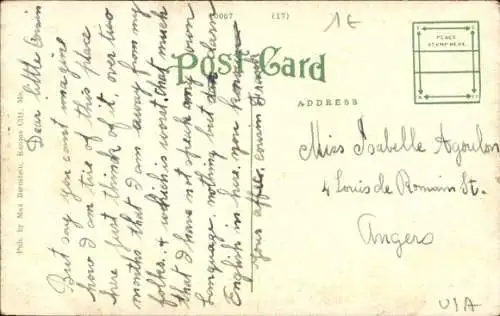 0007 (17)
1E
Post Card
PLACE
STAMP HERE
ADDRESS
Pub. by Max Bernstein, Kansas City, Mo.
Dear little Cousin
But say you cant imagine
how I am tire of this place
here just think of it, over two
months that I am away from my
folks. & which is worst, that much
that I have not speak my own
language. nothing but darn
English in here. you know
your affec. cousin
Miss Isabelle Agoulon
4 Louis de Romain St.
Angers
USA